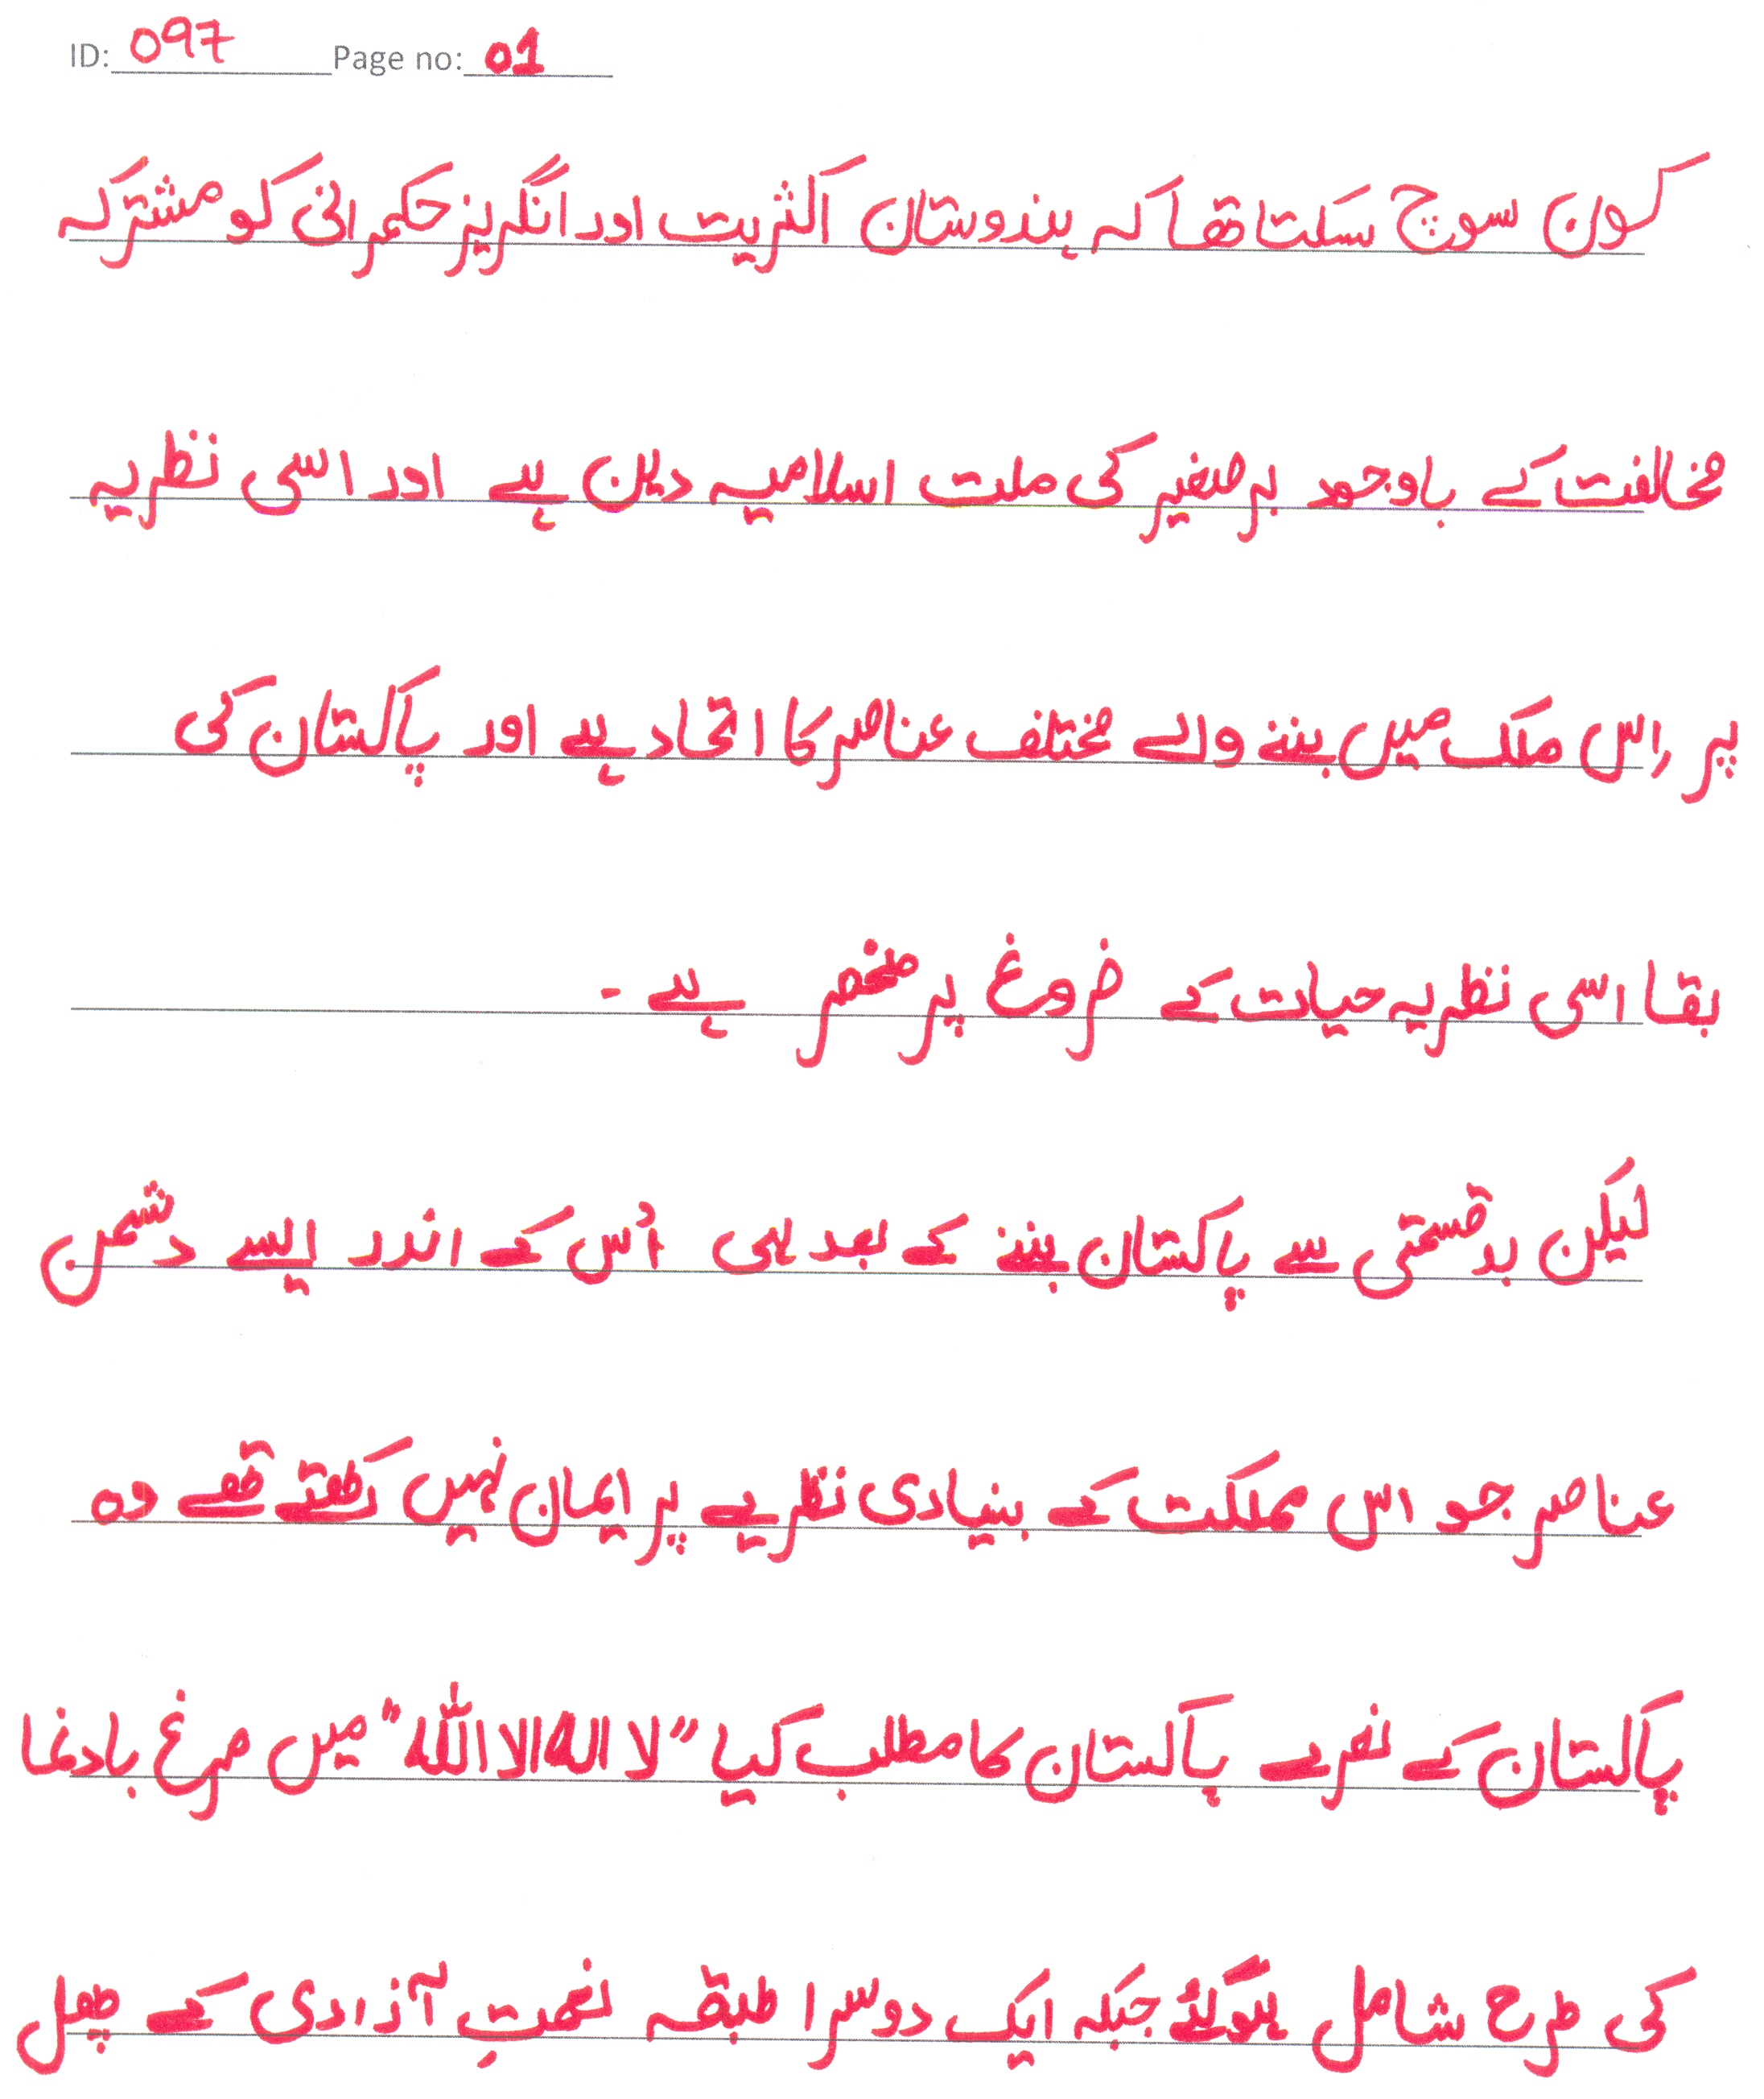 ID: 097 Page no: 01
کون سوچ سکتا تھا کہ ہندوستان اکثریت اور انگریز حکمرانی کو مشترکہ
مخالفت کے باوجود برصغیر کی ملت اسلامیہ دین ہے اور اسی نظریہ
پر اس ملک میں بننے والے مختلف عناصر کا اتحاد ہے اور پاکستان کی
بقا اسی نظریہ حیات کے فروغ پر منحصر ہے -
لیکن بدقسمتی سے پاکستان بننے کے بعد ہی اُس کے اندر ایسے دشمن
عناصر جو اس مملکت کے بنیادی نظریے پر ایمان نہیں رکھتے تھے وہ
پاکستان کے نعرے پاکستان کا مطلب کیا "لا الہ الا اللہ" میں مرغ بادنما
کی طرح شامل ہوگئے جبکہ ایک دوسرا طبقہ نعمتِ آزادی کے پھل